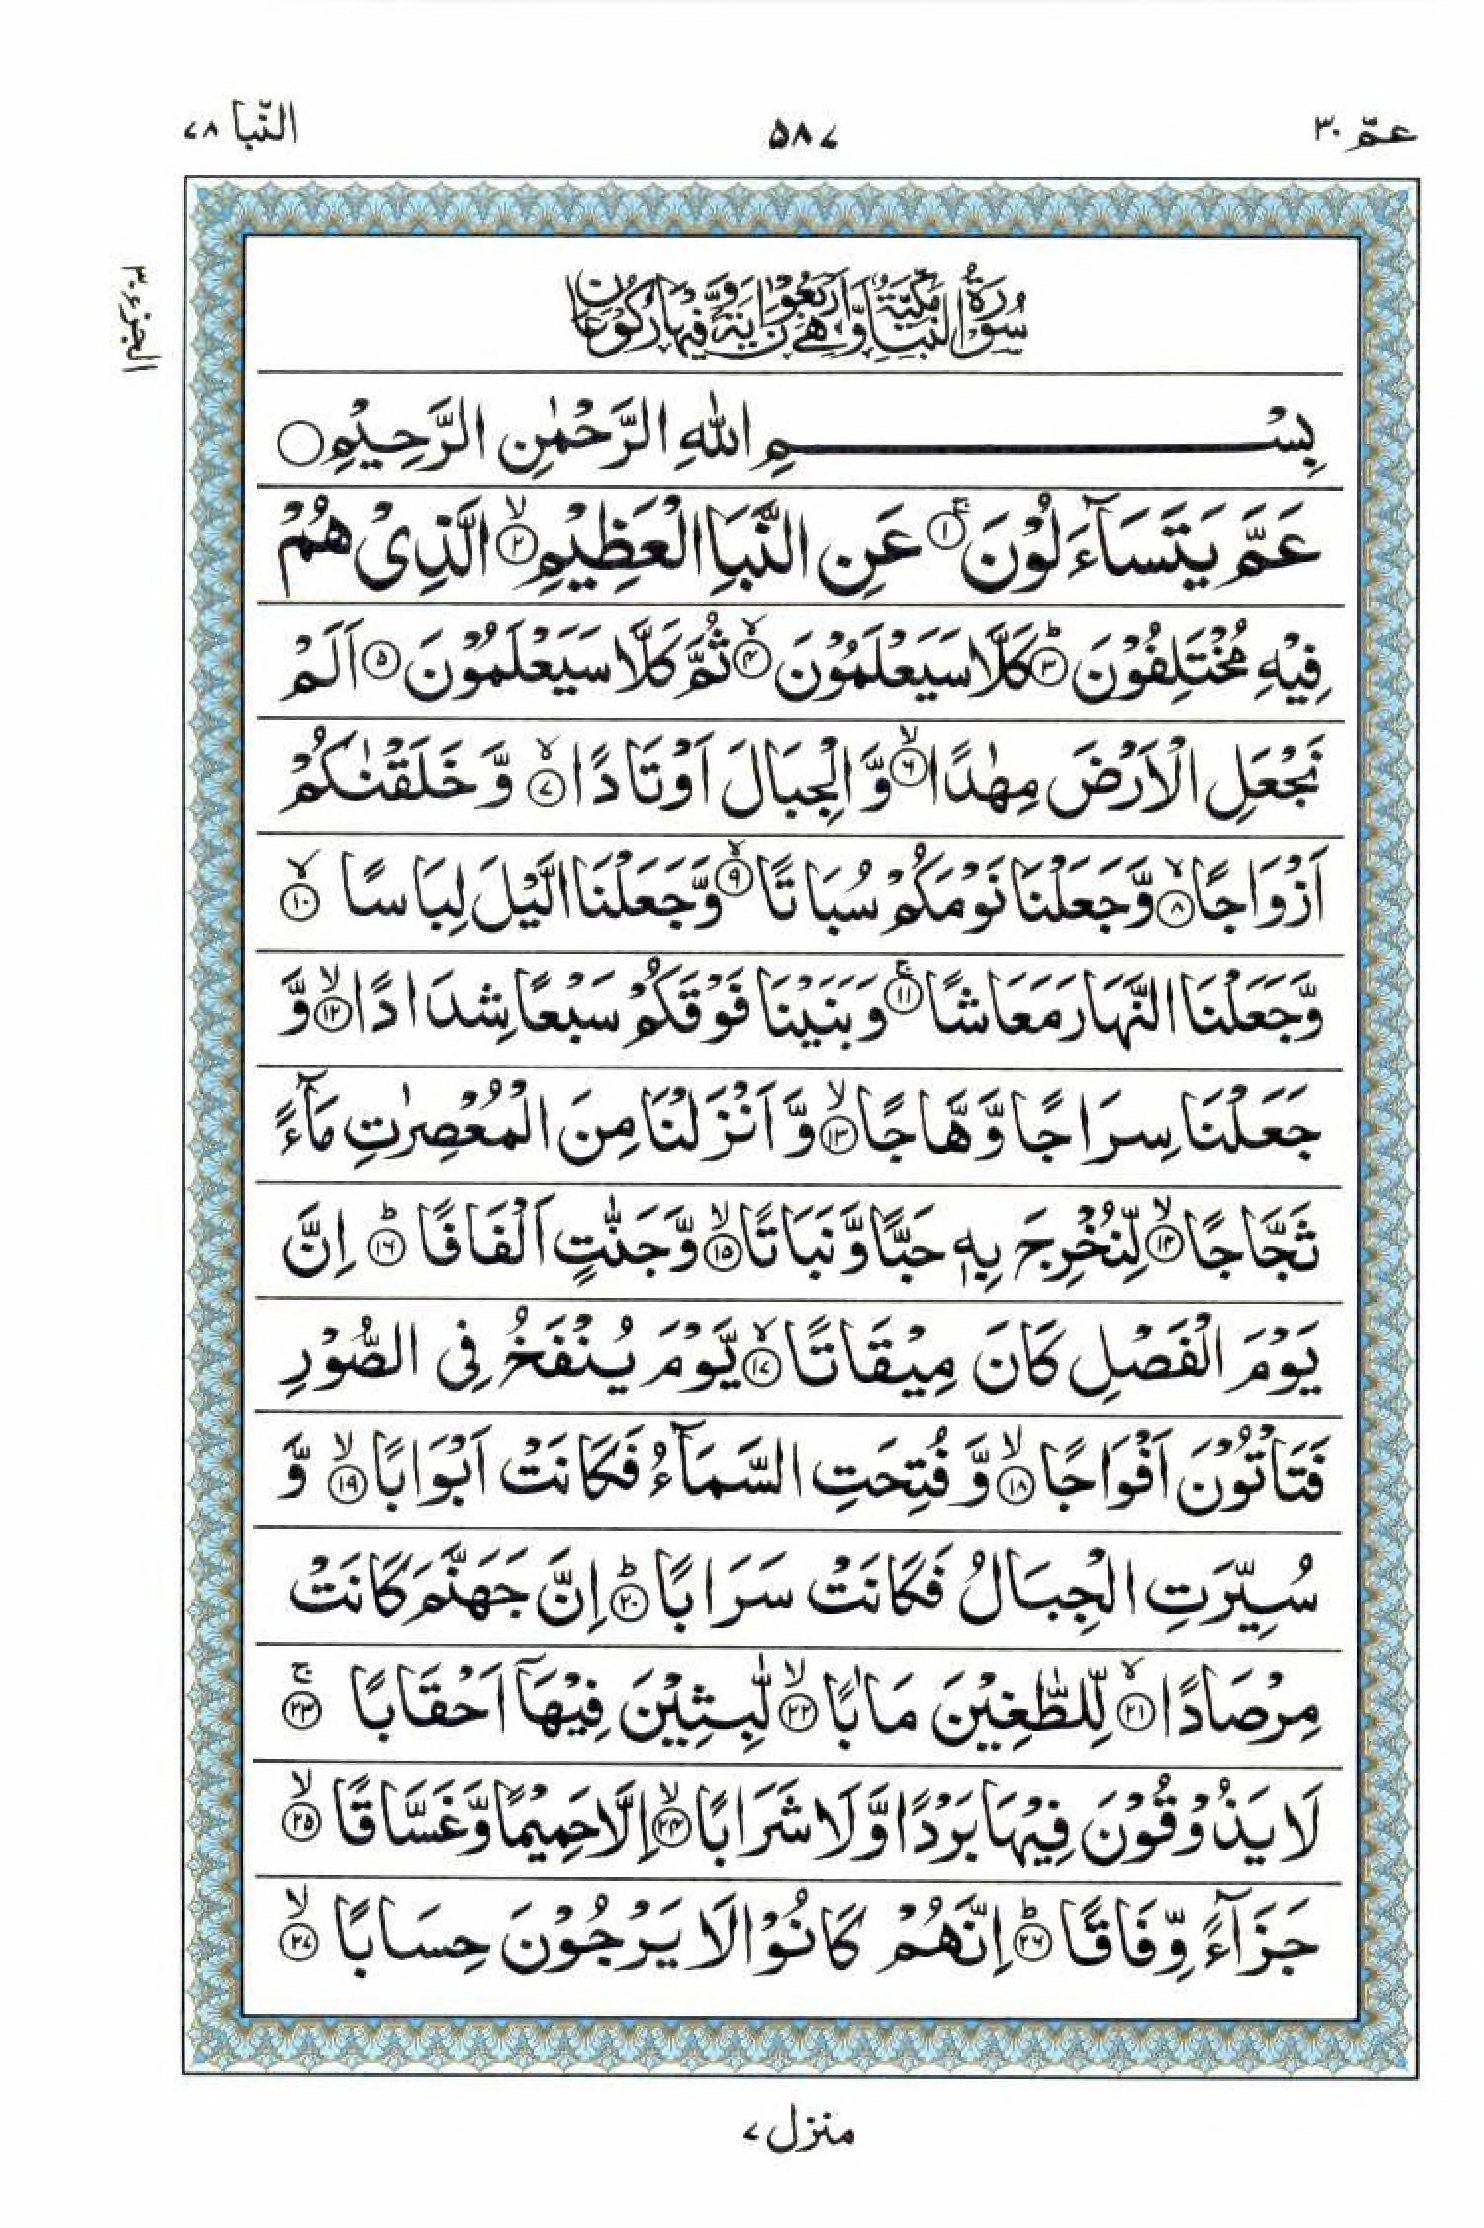 عمّ ٣٠
٥٨٧
النّبا ٧٨
الجزء ٣٠
سُوْرَةُ النَّبَاِ مَكِّيَّةٌ وَّهِيَ اَرْبَعُوْنَ اٰيَةً وَّفِيْهَا رُكُوْعَانِ
بِسْمِ اللّٰهِ الرَّحْمٰنِ الرَّحِيْمِ ○
عَمَّ يَتَسَآءَلُوْنَ ۚ‏﴿١﴾ عَنِ النَّبَاِ الْعَظِيْمِ ۙ‏﴿٢﴾ الَّذِىْ هُمْ
فِيْهِ مُخْتَلِفُوْنَ ؕ‏﴿٣﴾ كَلَّا سَيَعْلَمُوْنَ ۙ‏﴿٤﴾ ثُمَّ كَلَّا سَيَعْلَمُوْنَ ﴿٥﴾ اَلَمْ
نَجْعَلِ الْاَرْضَ مِهٰدًا ۙ‏﴿٦﴾ وَّالْجِبَالَ اَوْتَادًا ۙ‏﴿٧﴾ وَّخَلَقْنٰكُمْ
اَزْوَاجًا ۙ‏﴿٨﴾ وَّجَعَلْنَا نَوْمَكُمْ سُبَاتًا ۙ‏﴿٩﴾ وَّجَعَلْنَا الَّيْلَ لِبَاسًا ۙ‏﴿١٠﴾
وَّجَعَلْنَا النَّهَارَ مَعَاشًا ۚ‏﴿١١﴾ وَبَنَيْنَا فَوْقَكُمْ سَبْعًا شِدَادًا ۙ‏﴿١٢﴾ وَّ
جَعَلْنَا سِرَاجًا وَّهَّاجًا ۙ‏﴿١٣﴾ وَّاَنْزَلْنَا مِنَ الْمُعْصِرٰتِ مَآءً
ثَجَّاجًا ۙ‏﴿١٤﴾ لِّنُخْرِجَ بِهٖ حَبًّا وَّنَبَاتًا ۙ‏﴿١٥﴾ وَّجَنّٰتٍ اَلْفَافًا ؕ‏﴿١٦﴾ اِنَّ
يَوْمَ الْفَصْلِ كَانَ مِيْقَاتًا ۙ‏﴿١٧﴾ يَّوْمَ يُنْفَخُ فِى الصُّوْرِ
فَتَاْتُوْنَ اَفْوَاجًا ۙ‏﴿١٨﴾ وَّفُتِحَتِ السَّمَآءُ فَكَانَتْ اَبْوَابًا ۙ‏﴿١٩﴾ وَّ
سُيِّرَتِ الْجِبَالُ فَكَانَتْ سَرَابًا ؕ‏﴿٢٠﴾ اِنَّ جَهَنَّمَ كَانَتْ
مِرْصَادًا ۙ‏﴿٢١﴾ لِّلطّٰغِيْنَ مَاٰبًا ۙ‏﴿٢٢﴾ لّٰبِثِيْنَ فِيْهَاۤ اَحْقَابًا ۚ‏﴿٢٣﴾
لَا يَذُوْقُوْنَ فِيْهَا بَرْدًا وَّلَا شَرَابًا ۙ‏﴿٢٤﴾ اِلَّا حَمِيْمًا وَّغَسَّاقًا ۙ‏﴿٢٥﴾
جَزَآءً وِّفَاقًا ؕ‏﴿٢٦﴾ اِنَّهُمْ كَانُوْا لَا يَرْجُوْنَ حِسَابًا ۙ‏﴿٢٧﴾
منزل ٧